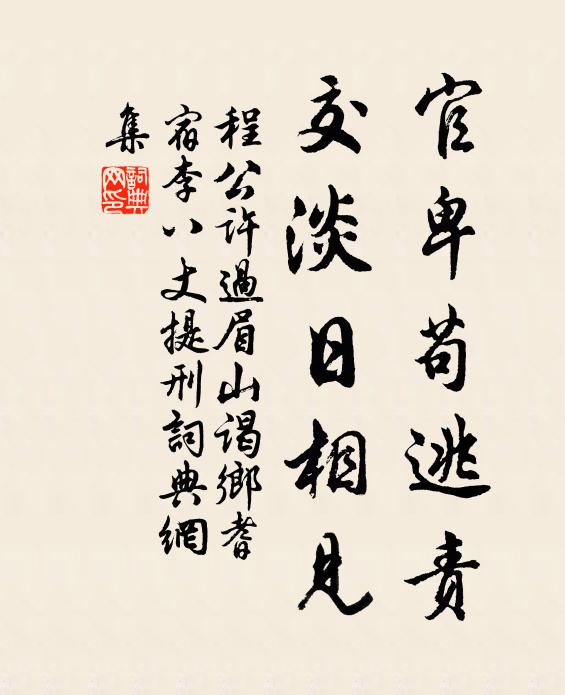 官卑苟逃責
交淡日相見
程公許過眉山謁鄉耆
宿李八丈提刑詞典網
集
詞典
网印